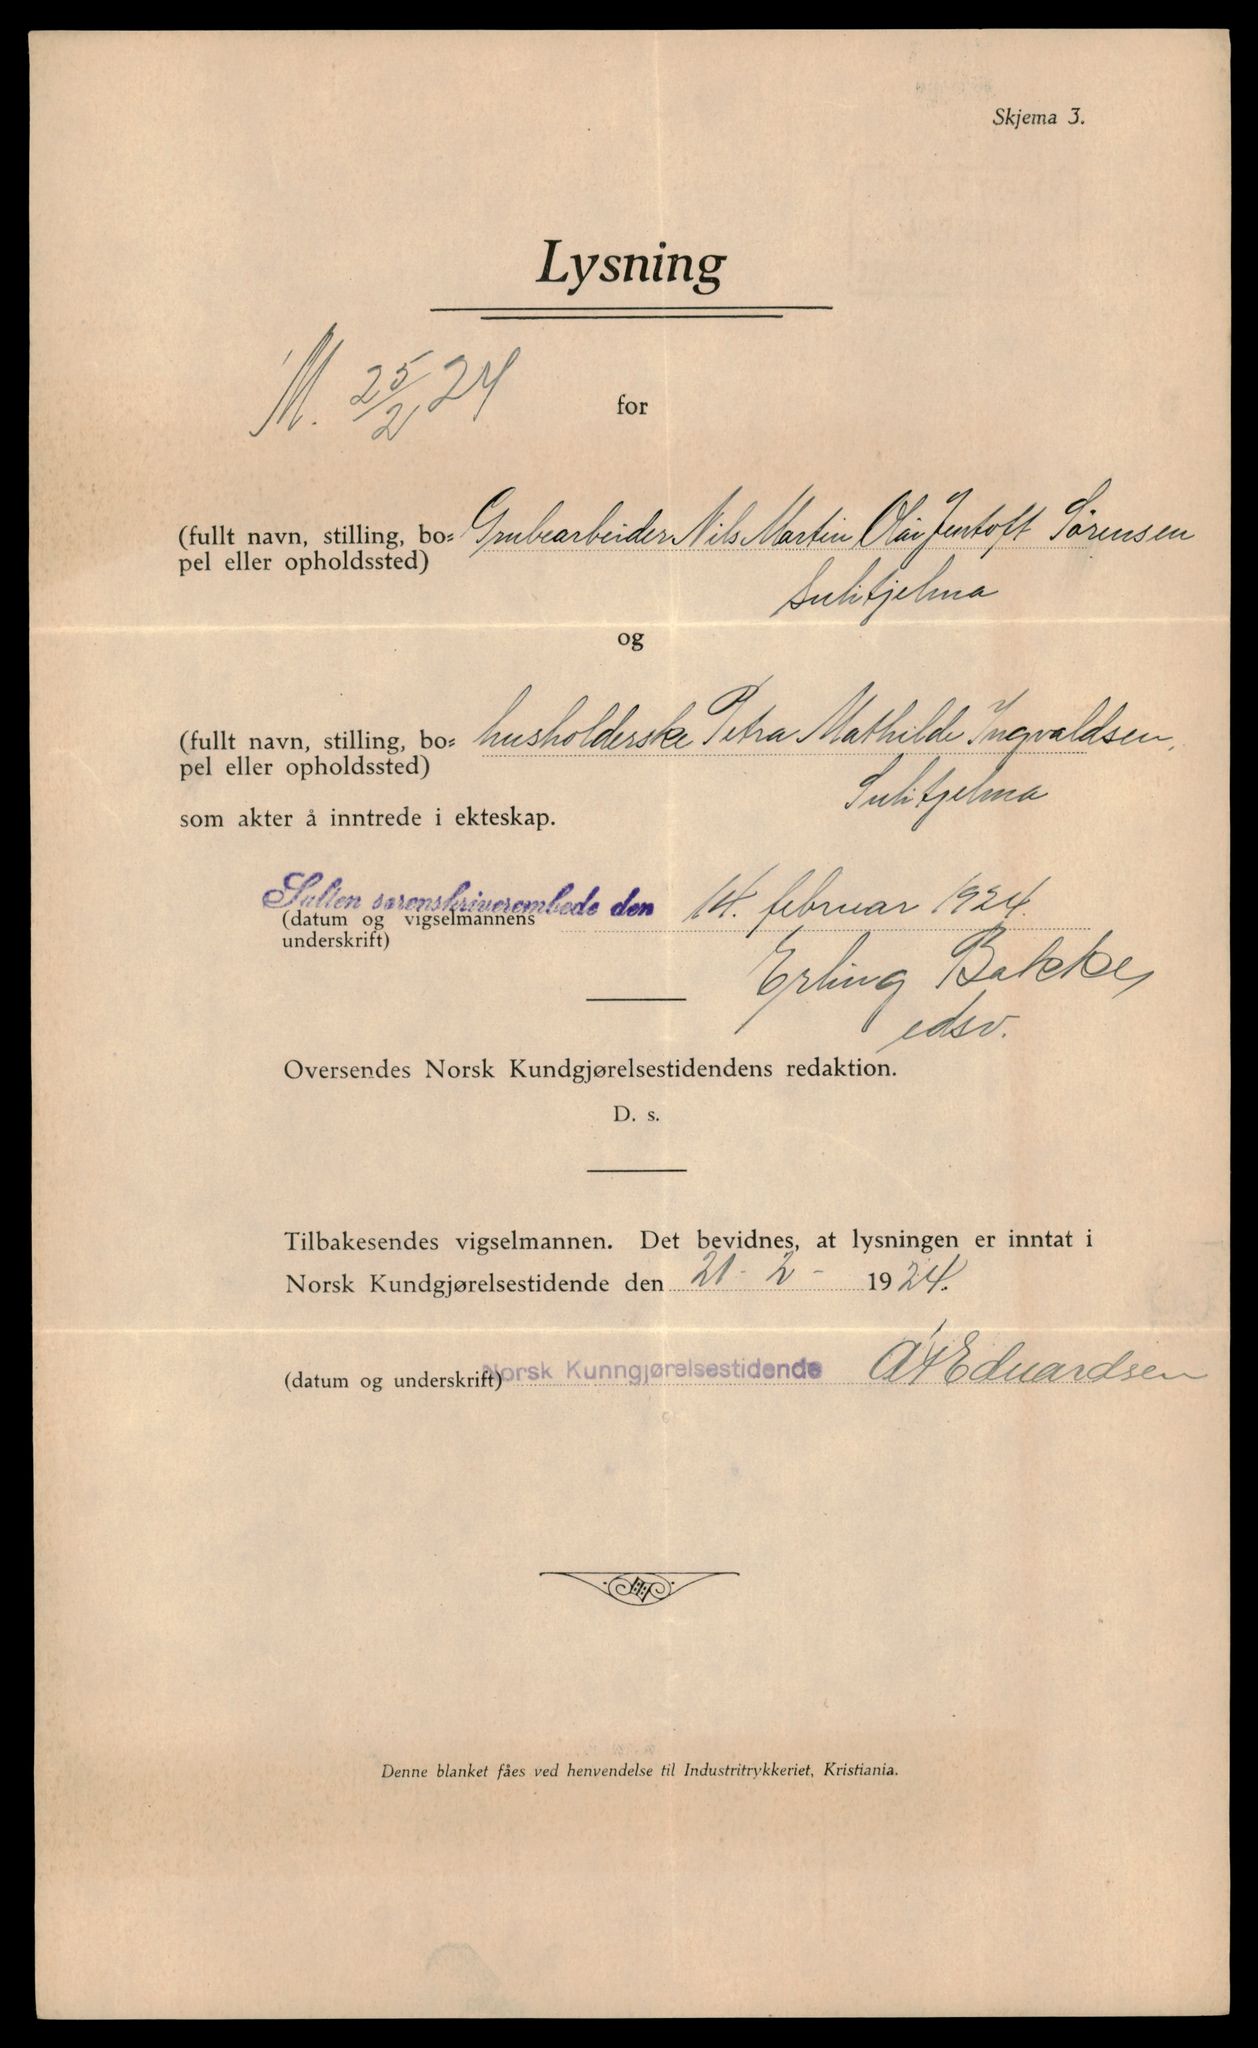 Skjema 3.
Lysning
M. 25/2 24
for
(fullt navn, stilling, bo= Grubearbeider Nils Martin Olai Jentoft Sørensen
pel eller opholdssted) Sulitjelma
og
(fullt navn, stilling, bo= husholderske Petra Mathilde Ingvaldsen,
pel eller opholdssted) Sulitjelma
som akter å inntrede i ekteskap.
Salten sorenskriverembede den 14. februar 1924.
(datum og vigselmannens
underskrift) Erling Bakke
edsv.
Oversendes Norsk Kundgjørelsestidendens redaktion.
D. s.
Tilbakesendes vigselmannen. Det bevidnes, at lysningen er inntat i
Norsk Kundgjørelsestidende den 21 - 2 - 1924.
(datum og underskrift) Norsk Kunngjørelsestidende Eduardsen
Denne blanket fåes ved henvendelse til Industritrykkeriet, Kristiania.